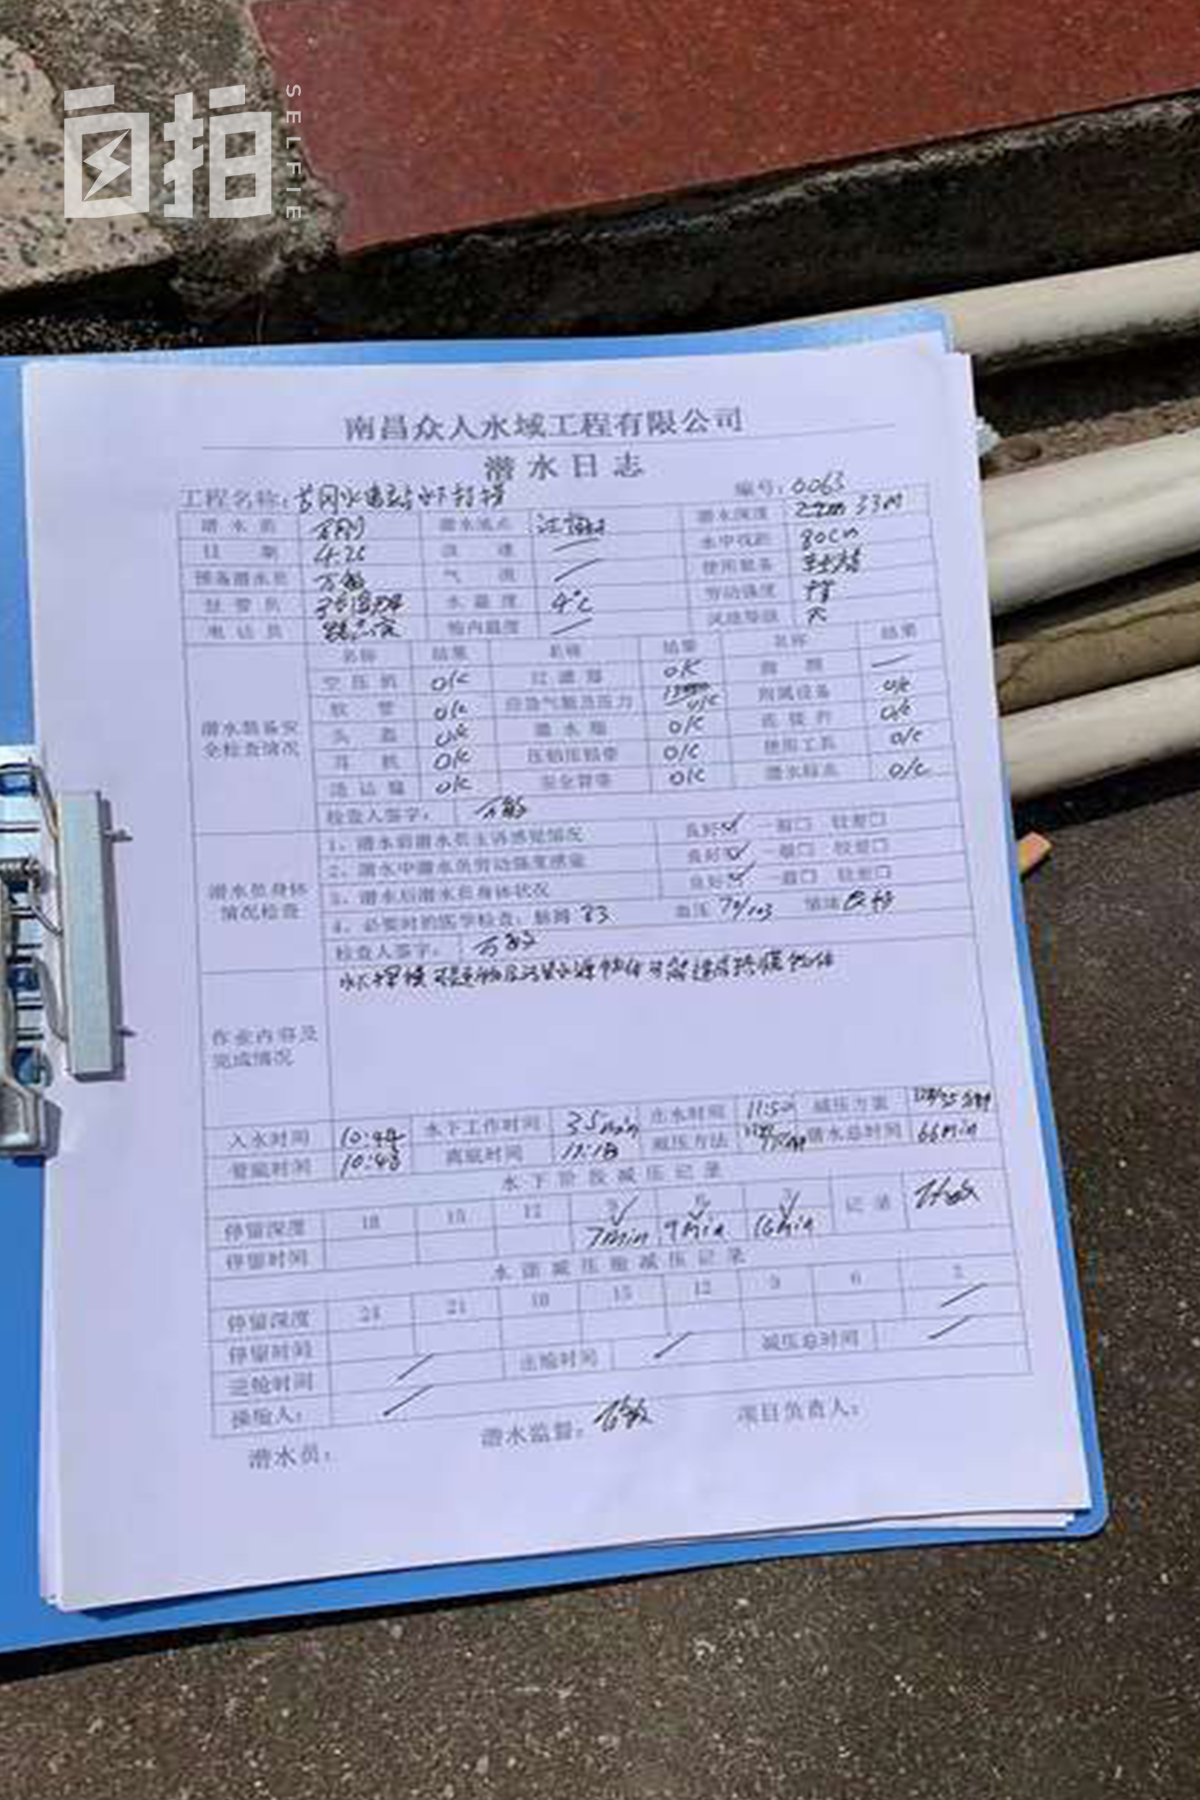 自拍
SELFIE
南昌众人水域工程有限公司
潜水日志
工程名称: 水电站水下打捞 编号: 0063
潜水员 万刚 潜水地点 潜水深度 33M
日期 4.26 流速 水中视距 80cm
预备潜水员 万敏 气流 使用装备
扯管员 水温度 4℃ 劳动强度
电话员 舱内温度 风浪等级
潜水装备安全检查情况
名称 结果 名称 结果 名称 结果
空压机 OK 过滤器 OK
软管 OK 应急气瓶及压力 OK 附属设备 OK
头盔 OK 潜水服 OK 连接件 OK
耳机 OK 压铅压铅带 OK 使用工具 OK
通话器 OK 安全背带 OK 潜水标志 OK
检查人签字: 万敏
潜水员身体情况检查
1、潜水前潜水员主诉感觉情况 良好☑ 一般□ 较差□
2、潜水中潜水员劳动强度感觉 良好☑ 一般□ 较差□
3、潜水后潜水员身体状况 良好☑ 一般□ 较差□
4、必要时的医学检查: 脉搏 83 血压 70/103 情绪 良好
检查人签字: 万敏
作业内容及完成情况
水下探摸
入水时间 10:44 水下工作时间 35min 出水时间 11:50 减压方案
着底时间 10:43 离底时间 11:18 减压方法 潜水总时间 66min
水下阶段减压记录
停留深度 18 15 12 9 6 3 记录 万敏
停留时间 7min 9min 16min
水面减压舱减压记录
停留深度 24 21 18 15 12 9 6 3
停留时间
进舱时间 出舱时间 减压总时间
操舱人:
潜水员: 潜水监督: 万敏 项目负责人: